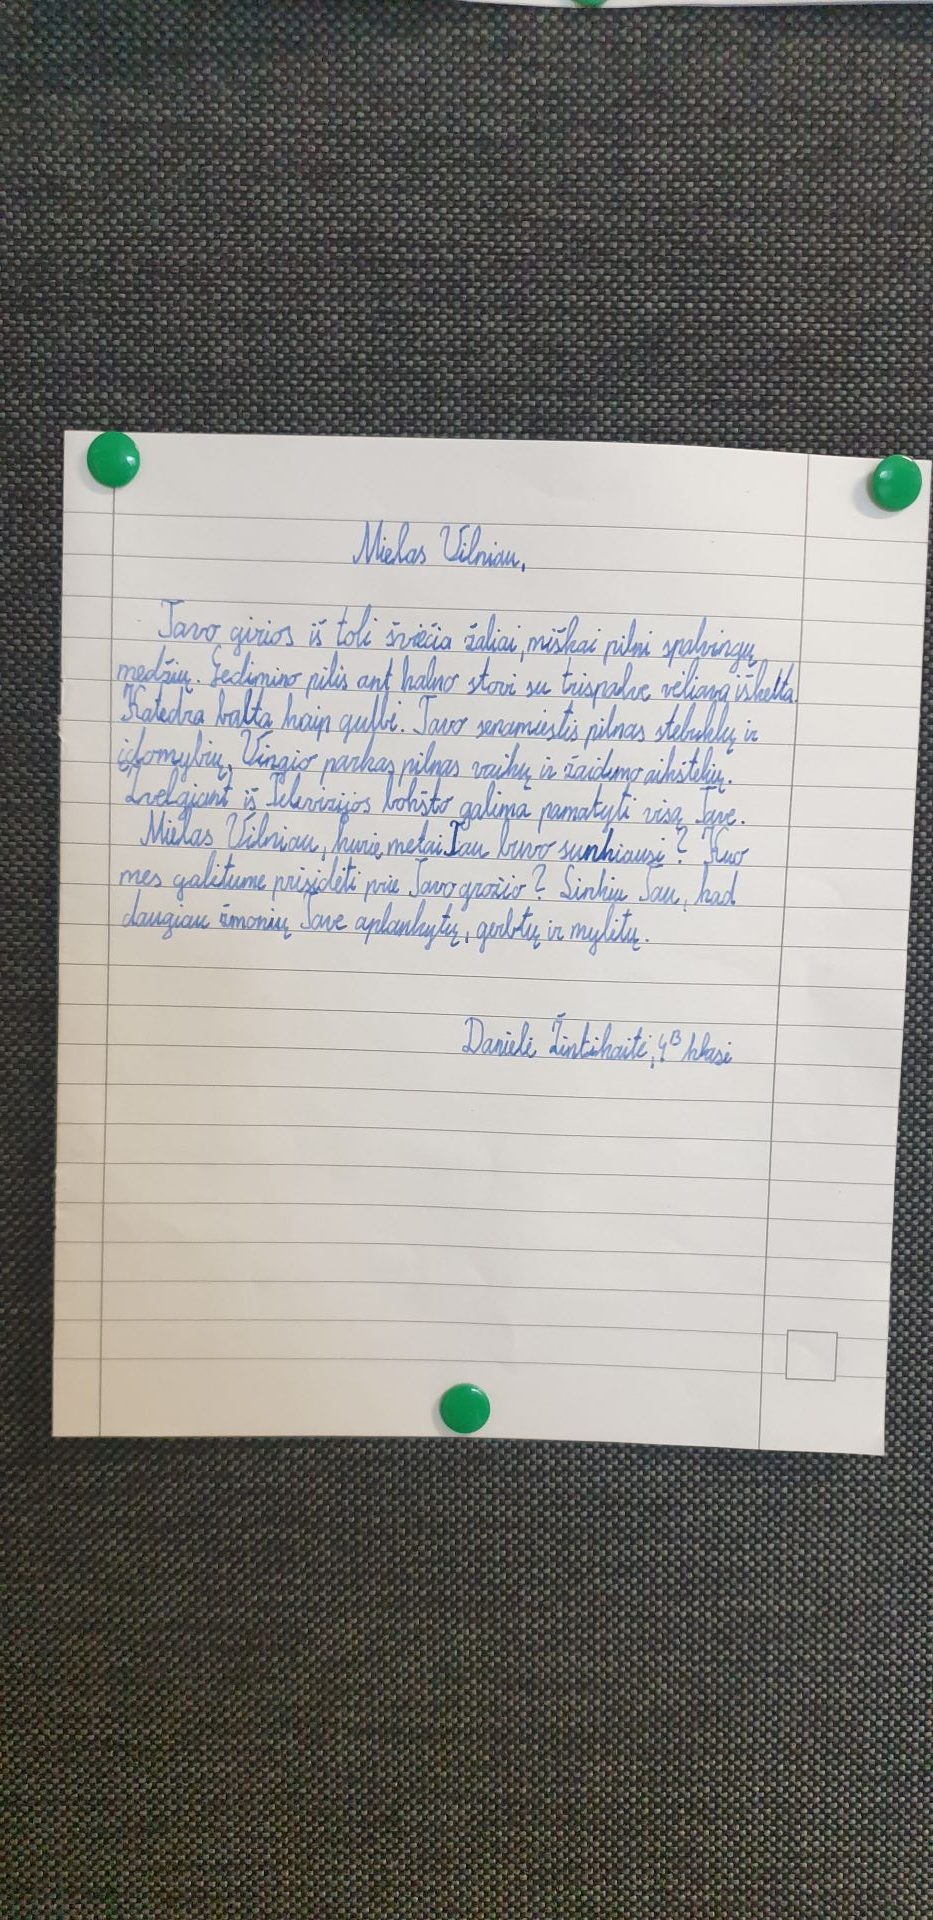 Mielas Vilniau,
Tavo girios iš toli šviečia žaliai, miškai pilni spalvingų
medžių. Gedimino pilis ant kalno stovi su trispalve vėliava iškelta.
Katedra balta kaip gulbi. Tavo senamiestis pilnas stebuklų ir
įdomybių, Vingio parkas pilnas vaikų ir žaidimo aikštelių.
Žvelgiant iš Televizijos bokšto galima pamatyti visą Tave.
Mielas Vilniau, kurie metai Tau buvo sunkiausi? Kuo
mes galitume prisidėti prie Tavo grožio? Linkiu Tau, kad
daugiau žmonių Tave aplankytų, gerbtų ir mylitų.
Danielė Žintikaitė, 4B klasė